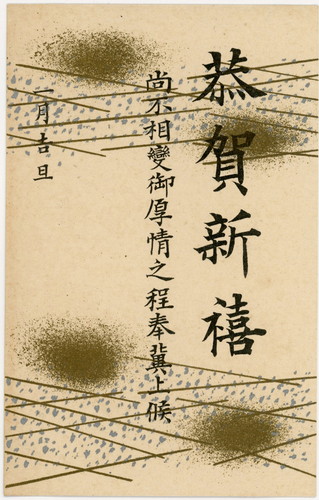 恭賀新禧
尚不相變御厚情之程奉冀上候
一月吉旦